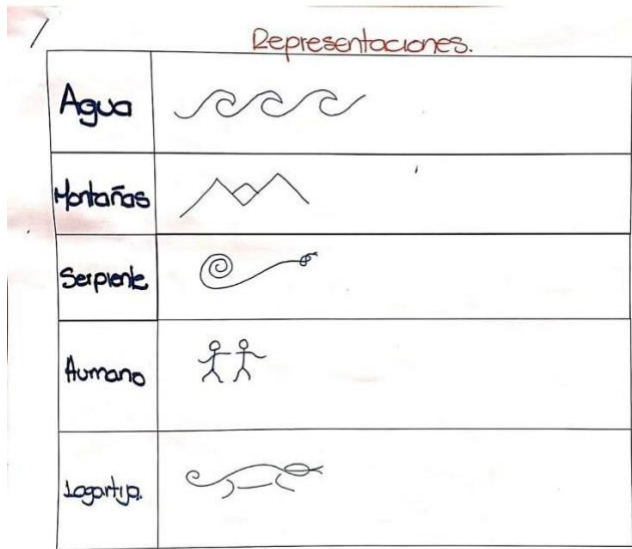 Representaciones.
Agua
Montañas
Serpiente
Humano
Lagartija.